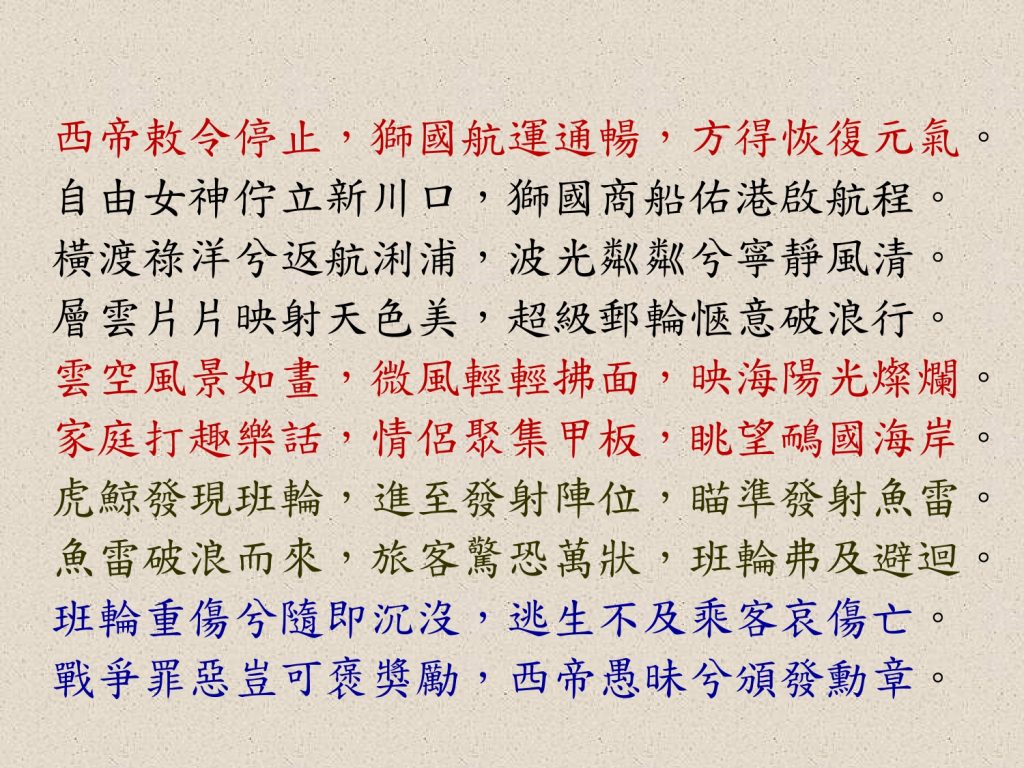 西帝敕令停止，獅國航運通暢，方得恢復元氣。
自由女神佇立新川口，獅國商船佑港啟航程。
橫渡祿洋兮返航浰浦，波光粼粼兮寧靜風清。
層雲片片映射天色美，超級郵輪愜意破浪行。
雲空風景如畫，微風輕輕拂面，映海陽光燦爛。
家庭打趣樂話，情侶聚集甲板，眺望鳾國海岸。
虎鯨發現班輪，進至發射陣位，瞄準發射魚雷。
魚雷破浪而來，旅客驚恐萬狀，班輪弗及避迴。
班輪重傷兮隨即沉沒，逃生不及乘客哀傷亡。
戰爭罪惡豈可褒獎勵，西帝愚昧兮頒發勳章。